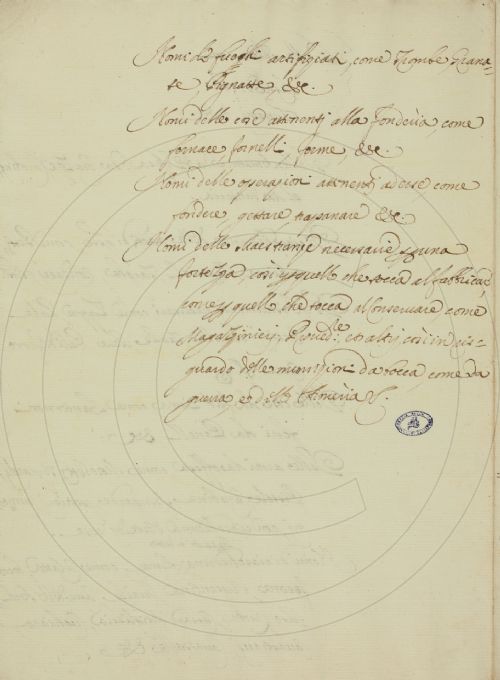 Nomi de fuochi artifiziati, come Trombe Grana-
te, Pignatte, &c.
Nomi delle cose attenenti alla Fonderia come
fornace, fornelli, forme, &c.
Nomi delle operazioni attenenti ad esse come
fondere gettare trapanare &c.
Nomi delle Maestranze necessarie p una
fortezza, così p quello che tocca al fabbricar,
come p quello che tocca al Conservare come
Magazzinieri, et altri così in ri-
guardo delle munizioni da bocca come da
guerra e della Armeria &.